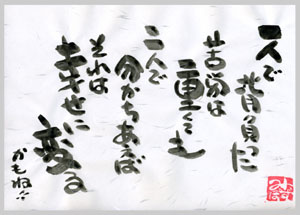 一人で
背負った
苦労は
重くても
二人で
分かちあえば
それは
幸せに
変る
かもね☆